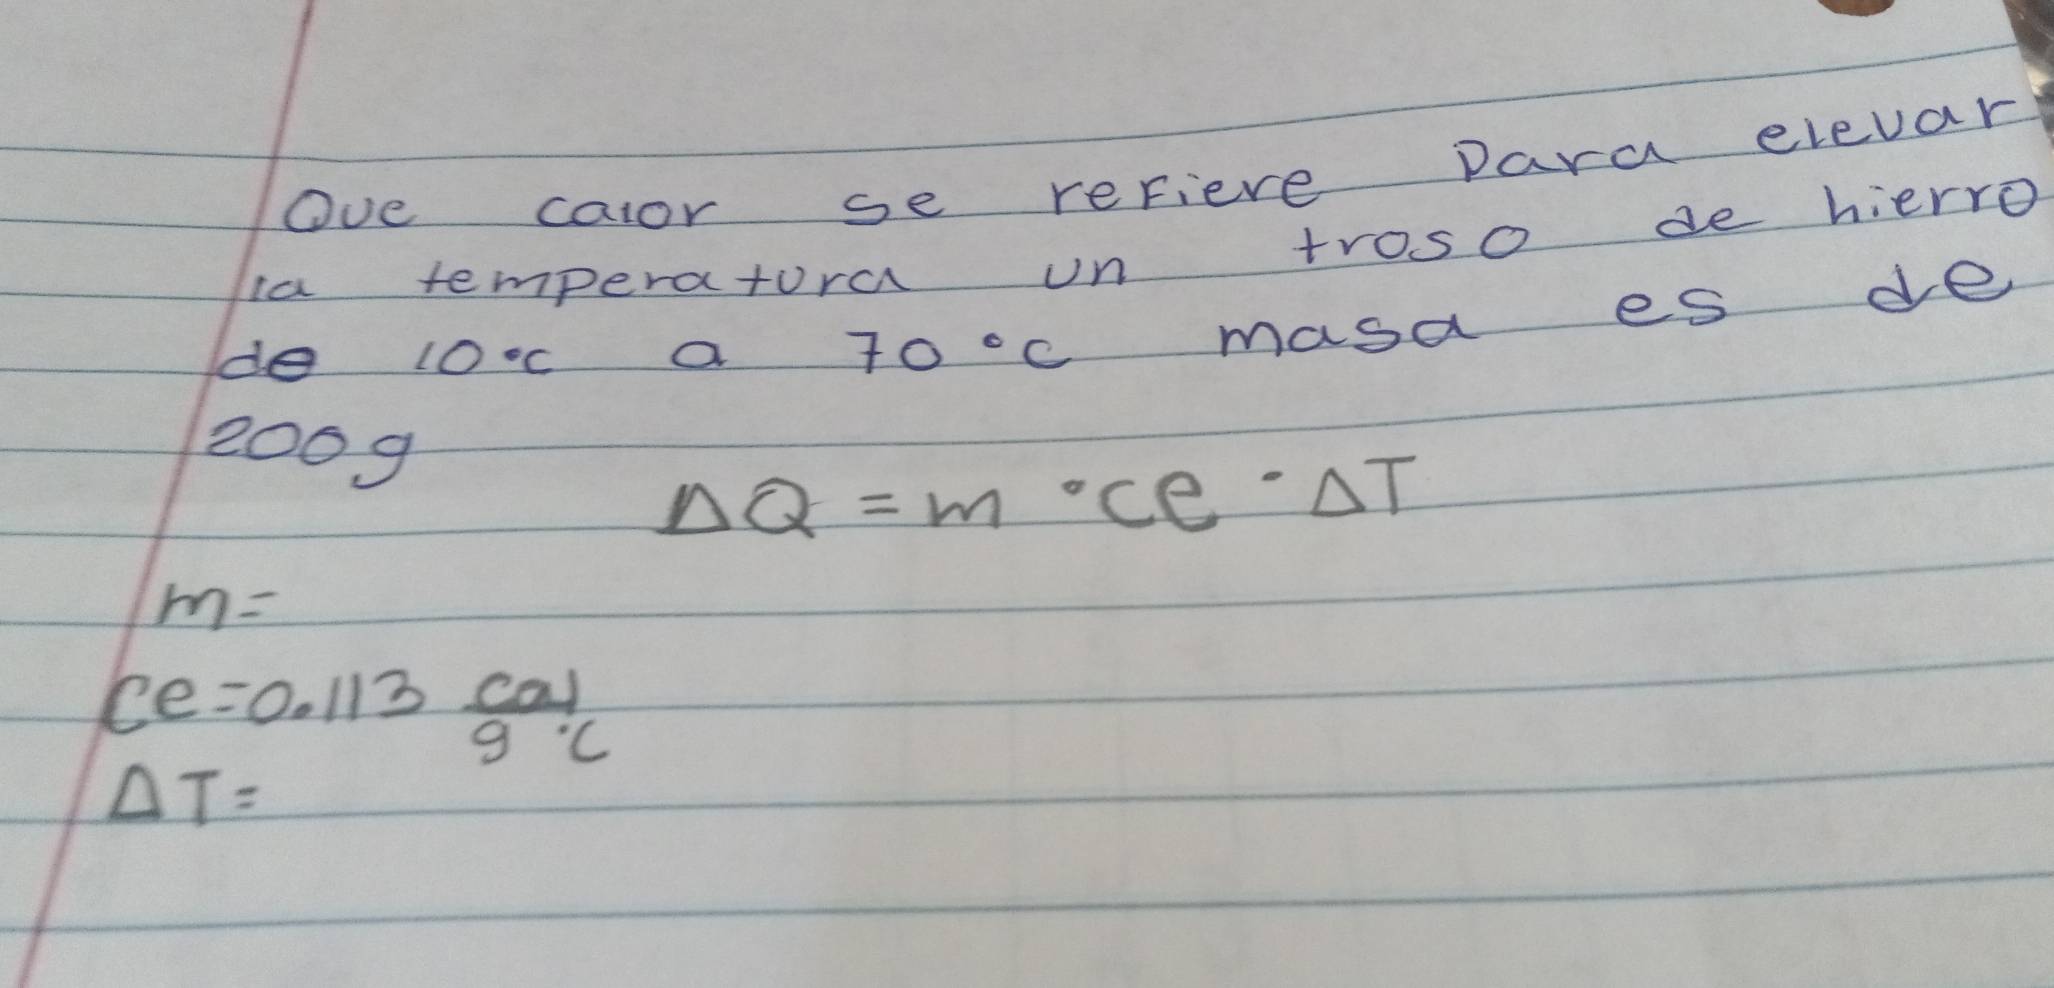 Que calor se refiere para elevar
la temperatura un troso de hierro
de 10°c a 70°c masa es de
200g
ΔQ = m · ce · ΔT
m=
ce=0.113 cal
g °C
ΔT=